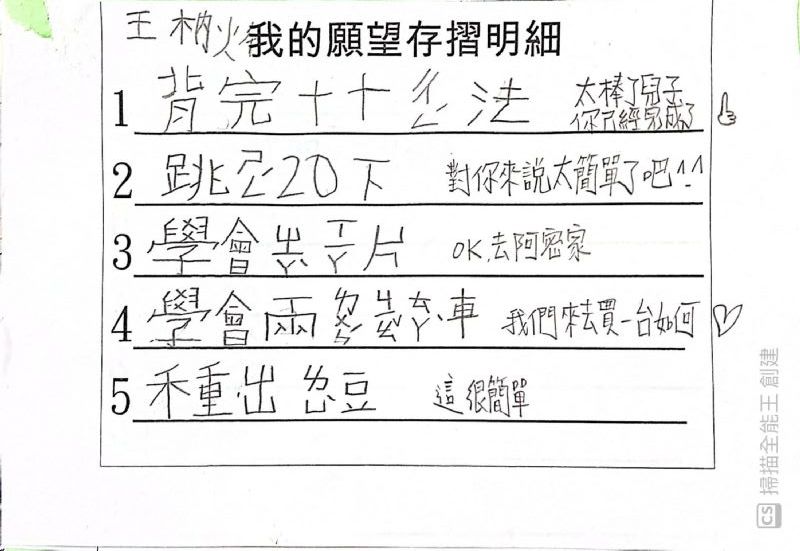 王
我的願望存摺明細
1 背完十十ㄔㄥˊ法 太棒了兒子
你已經完成了
2 跳ㄕㄥˊ20下 對你來說太簡單了吧！！
3 學會 片 OK,去阿密家
4 學會兩 車 我們來去買一台如何♡
5 禾重出 豆 這很簡單
CS 掃描全能王 創建